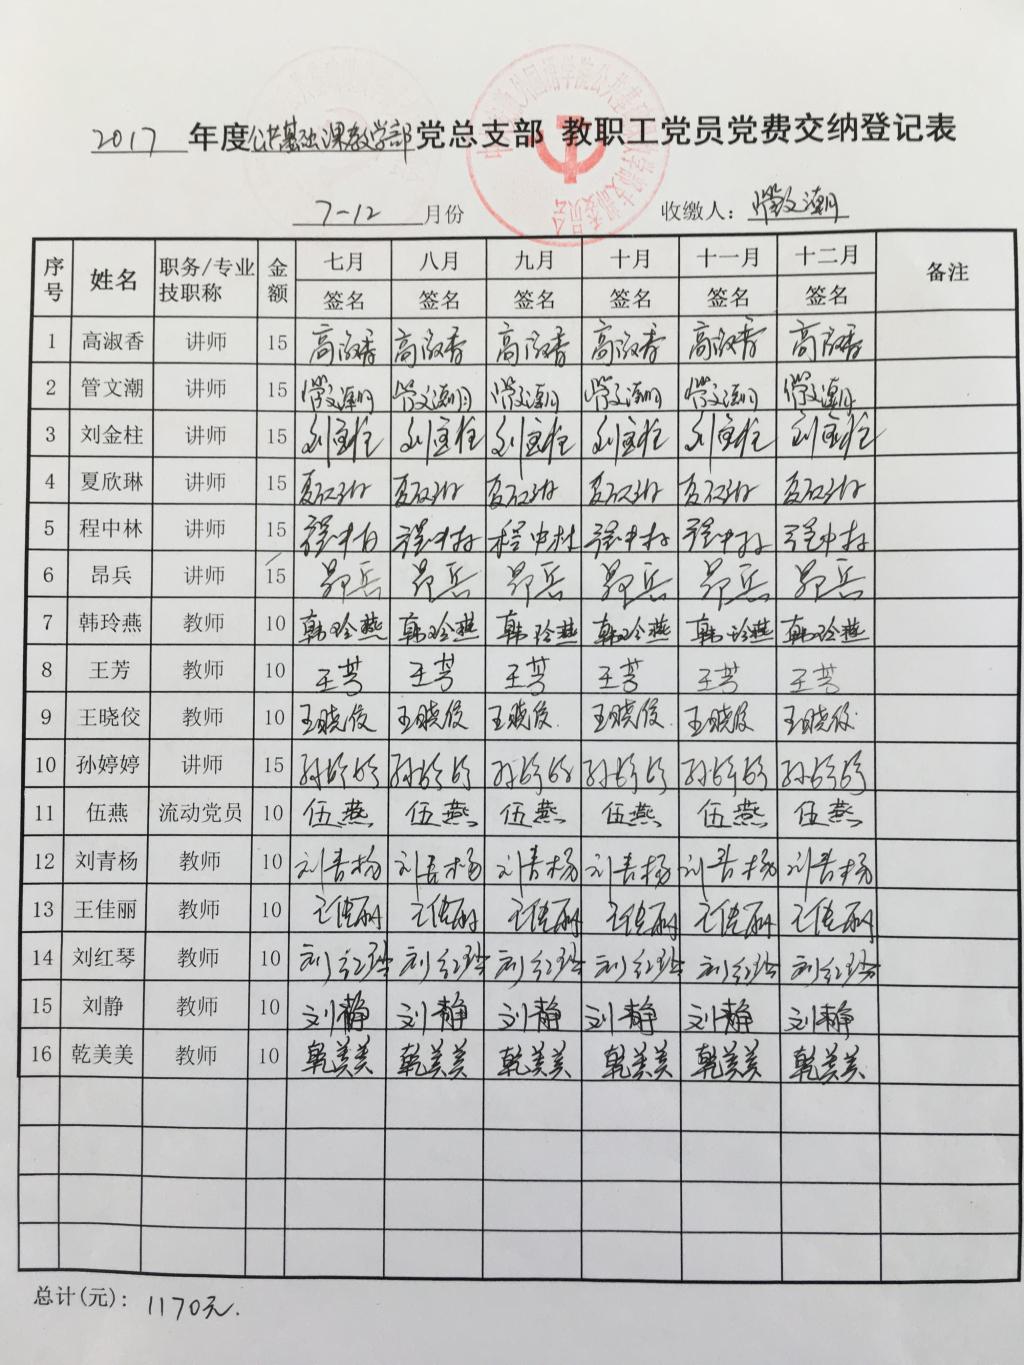 2017 年度公共基础课教学部党总支部 教职工党员党费交纳登记表
7-12 月份 收缴人：管文潮
序号 姓名 职务/专业技职称 金额 七月 八月 九月 十月 十一月 十二月 备注
签名 签名 签名 签名 签名 签名
1 高淑香 讲师 15 高淑香 高淑香 高淑香 高淑香 高淑香 高淑香
2 管文潮 讲师 15 管文潮 管文潮 管文潮 管文潮 管文潮 管文潮
3 刘金柱 讲师 15 刘金柱 刘金柱 刘金柱 刘金柱 刘金柱 刘金柱
4 夏欣琳 讲师 15 夏欣琳 夏欣琳 夏欣琳 夏欣琳 夏欣琳 夏欣琳
5 程中林 讲师 15 程中林 程中林 程中林 程中林 程中林 程中林
6 昂兵 讲师 15 昂兵 昂兵 昂兵 昂兵 昂兵 昂兵
7 韩玲燕 教师 10 韩玲燕 韩玲燕 韩玲燕 韩玲燕 韩玲燕 韩玲燕
8 王芳 教师 10 王芳 王芳 王芳 王芳 王芳 王芳
9 王晓佼 教师 10 王晓佼 王晓佼 王晓佼 王晓佼 王晓佼 王晓佼
10 孙婷婷 讲师 15 孙婷婷 孙婷婷 孙婷婷 孙婷婷 孙婷婷 孙婷婷
11 伍燕 流动党员 10 伍燕 伍燕 伍燕 伍燕 伍燕 伍燕
12 刘青杨 教师 10 刘青杨 刘青杨 刘青杨 刘青杨 刘青杨 刘青杨
13 王佳丽 教师 10 王佳丽 王佳丽 王佳丽 王佳丽 王佳丽 王佳丽
14 刘红琴 教师 10 刘红琴 刘红琴 刘红琴 刘红琴 刘红琴 刘红琴
15 刘静 教师 10 刘静 刘静 刘静 刘静 刘静 刘静
16 乾美美 教师 10 乾美美 乾美美 乾美美 乾美美 乾美美 乾美美
总计(元)：1170元.